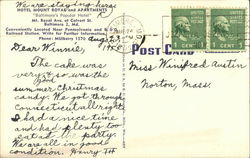 We are staying here.
HOTEL MOUNT ROYAL and APARTMENTS
"Baltimore's Popular Hotel"
Mt. Royal Ave. at Calvert St.
Baltimore 2, Md.
Conveniently Located Near Pennsylvania and B. & O.
Railroad Station. Write for Further Information
Phone: MUlberry 1570
Aug. 23
Dear Winnie,
The cake was
very good so was the
summer Christmas
candy. We got through
Connecticut all right.
I had a nice time
and had plenty to
eat at the party.
We are all in good
condition. Henry
Post Card
CENT
CENT
Miss Winifred Austin
Norton, Mass.